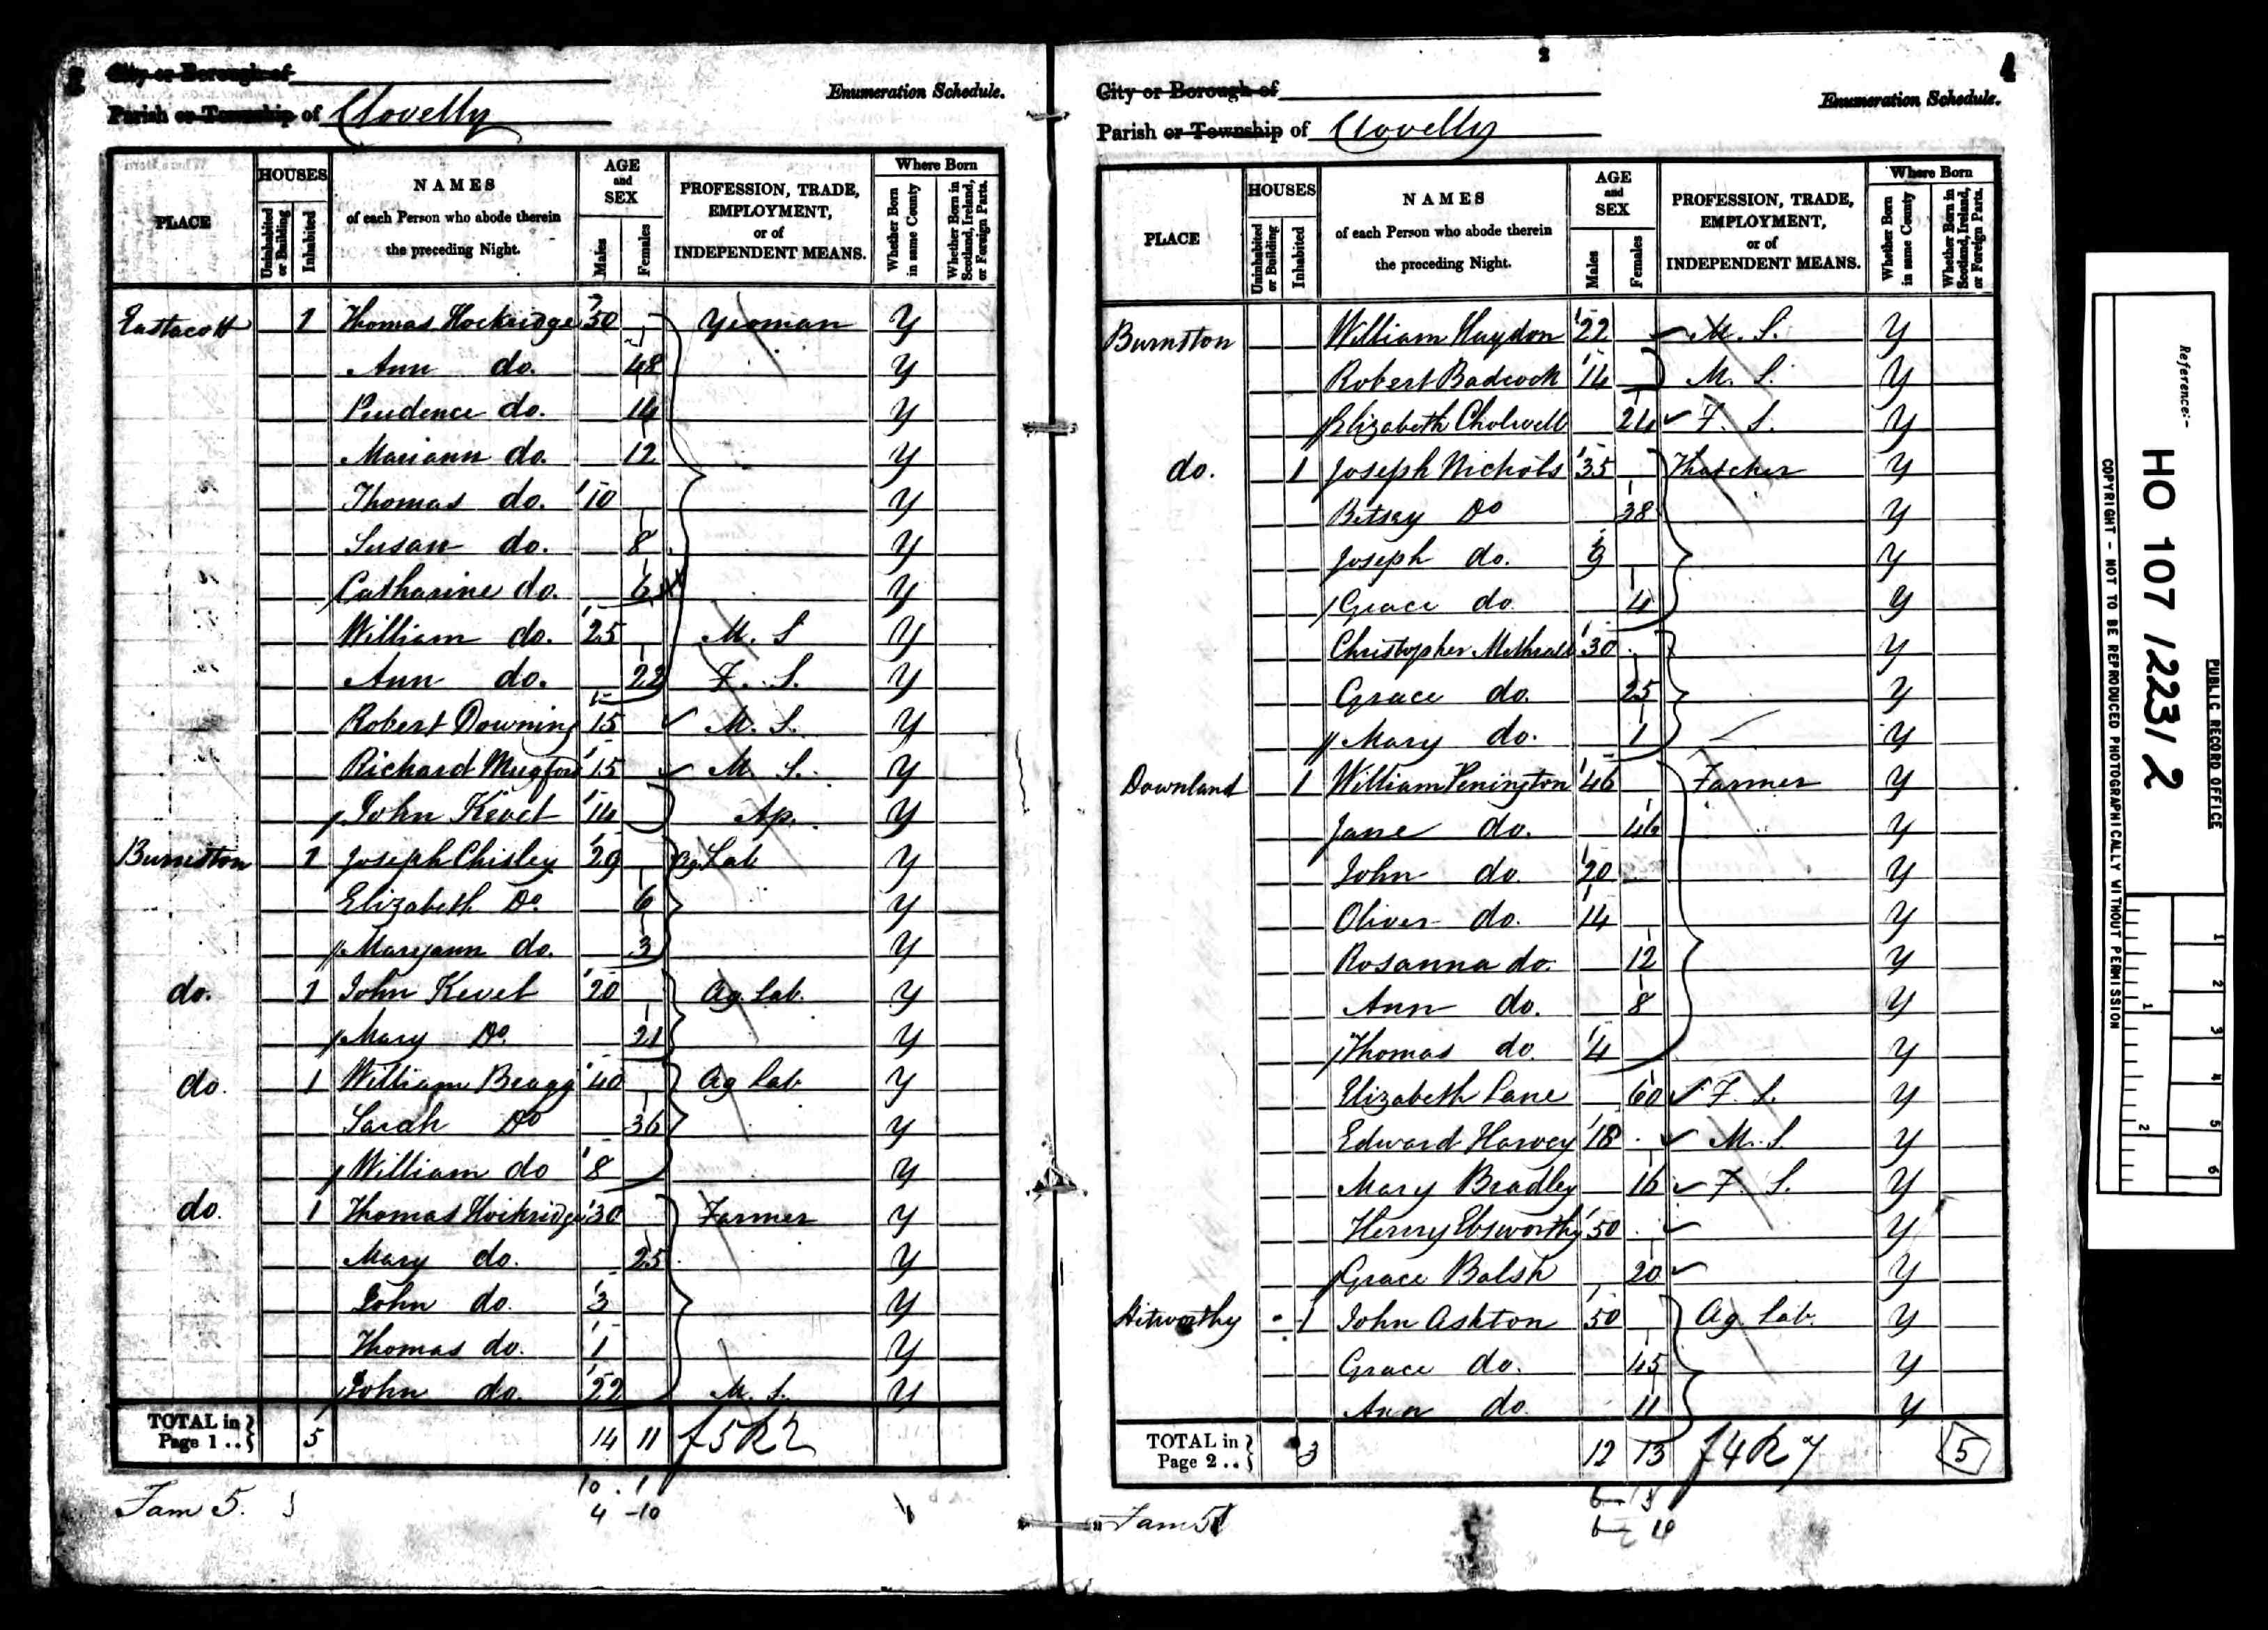 City or Borough of
Enumeration Schedule.
Parish or Township of Clovelly
PLACE
HOUSES
Uninhabited or Building
Inhabited
NAMES
of each Person who abode therein
the preceding Night.
AGE
and
SEX
Males
Females
PROFESSION, TRADE,
EMPLOYMENT,
or of
INDEPENDENT MEANS.
Where Born
Whether Born in same County
Whether Born in Scotland, Ireland, or Foreign Parts.
Eastacott 1 Thomas Hockridge 50 Yeoman Y
Ann do. 48 Y
Prudence do. 14 Y
Mariann do. 12 Y
Thomas do. 10 Y
Susan do. 8 Y
Catharine do. 6 Y
William do. 25 M. S Y
Ann do. 22 F. S. Y
Robert Downing 15 M. S. Y
Richard Mugford 15 M. S. Y
John Kevel 14 Ap. Y
Burnston 1 Joseph Chisley 29 Ag Lab Y
Elizabeth Do. 6 Y
Maryann do. 3 Y
do. 1 John Kevel 20 Ag. Lab. Y
Mary Do. 21 Y
do. 1 William Bragg 40 Ag Lab Y
Sarah Do 36 Y
William do 8 Y
do. 1 Thomas Hockridge 30 Farmer Y
Mary do. 25 Y
John do. 3 Y
Thomas do. 1 Y
John do. 22 M. S. Y
TOTAL in Page 1 .. 5 14 11
Fam 5.
10 . 1
4 -10
2
4
City or Borough of
Enumeration Schedule.
Parish or Township of Clovelly
PLACE
HOUSES
Uninhabited or Building
Inhabited
NAMES
of each Person who abode therein
the preceding Night.
AGE
and
SEX
Males
Females
PROFESSION, TRADE,
EMPLOYMENT,
or of
INDEPENDENT MEANS.
Where Born
Whether Born in same County
Whether Born in Scotland, Ireland, or Foreign Parts.
Burnston William Haydon 22 M. S. Y
Robert Badcock 14 M. S. Y
Elizabeth Cholwell 24 F. S. Y
do. 1 Joseph Nichols 35 Thatcher Y
Betsey Do 38 Y
Joseph do. 9 Y
Grace do 4 Y
Christopher 30 Y
Grace do. 25 Y
Mary do. 1 Y
Downland 1 William Penington 46 Farmer Y
Jane do. 46 Y
John do. 20 Y
Oliver do. 14 Y
Rosanna do. 12 Y
Ann do. 8 Y
Thomas do. 4 Y
Elizabeth Lane 60 F. S. Y
Edward Harvey 18 M. S. Y
Mary Bradley 16 F. S. Y
Henry Ebsworthy 50 Y
Grace Balsh 20 Y
Hitworthy 1 John Ashton 50 Ag Lab. Y
Grace do. 45 Y
Ann do. 11 Y
TOTAL in Page 2 .. 3 12 13 5
Fam 5
Reference:-
PUBLIC RECORD OFFICE
HO 107 / 223/ 2
COPYRIGHT - NOT TO BE REPRODUCED PHOTOGRAPHICALLY WITHOUT PERMISSION
1 2 3 4 5 6
1 2